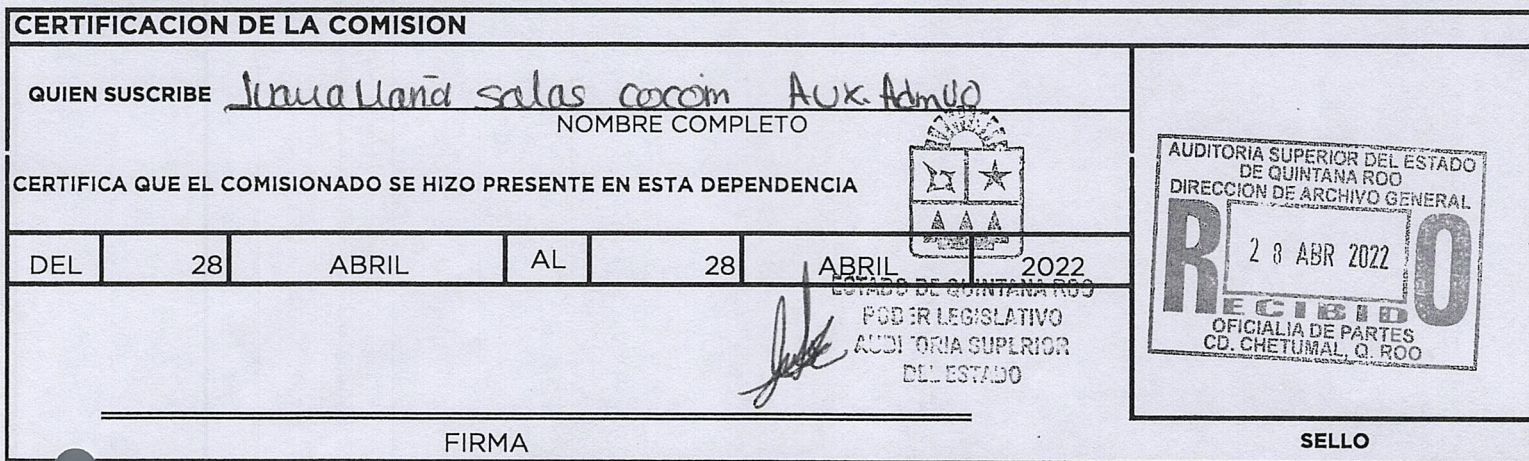 CERTIFICACION DE LA COMISION
QUIEN SUSCRIBE Juana María salas cocom AUX. Admvo
NOMBRE COMPLETO
CERTIFICA QUE EL COMISIONADO SE HIZO PRESENTE EN ESTA DEPENDENCIA
DEL 28 ABRIL AL 28 ABRIL 2022
ESTADO DE QUINTANA ROO
PODER LEGISLATIVO
AUDITORIA SUPERIOR
DEL ESTADO
FIRMA
AUDITORIA SUPERIOR DEL ESTADO
DE QUINTANA ROO
DIRECCION DE ARCHIVO GENERAL
RECIBIDO
2 8 ABR 2022
OFICIALIA DE PARTES
CD. CHETUMAL, Q. ROO
SELLO